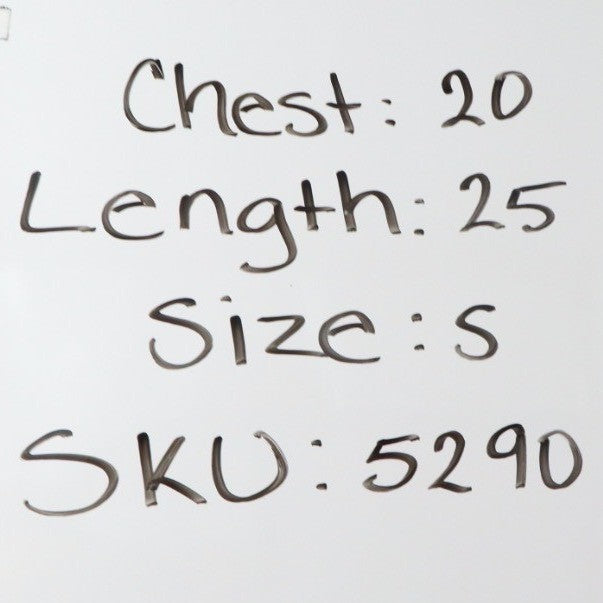 Chest: 20
Length: 25
Size: S
SKU: 5290